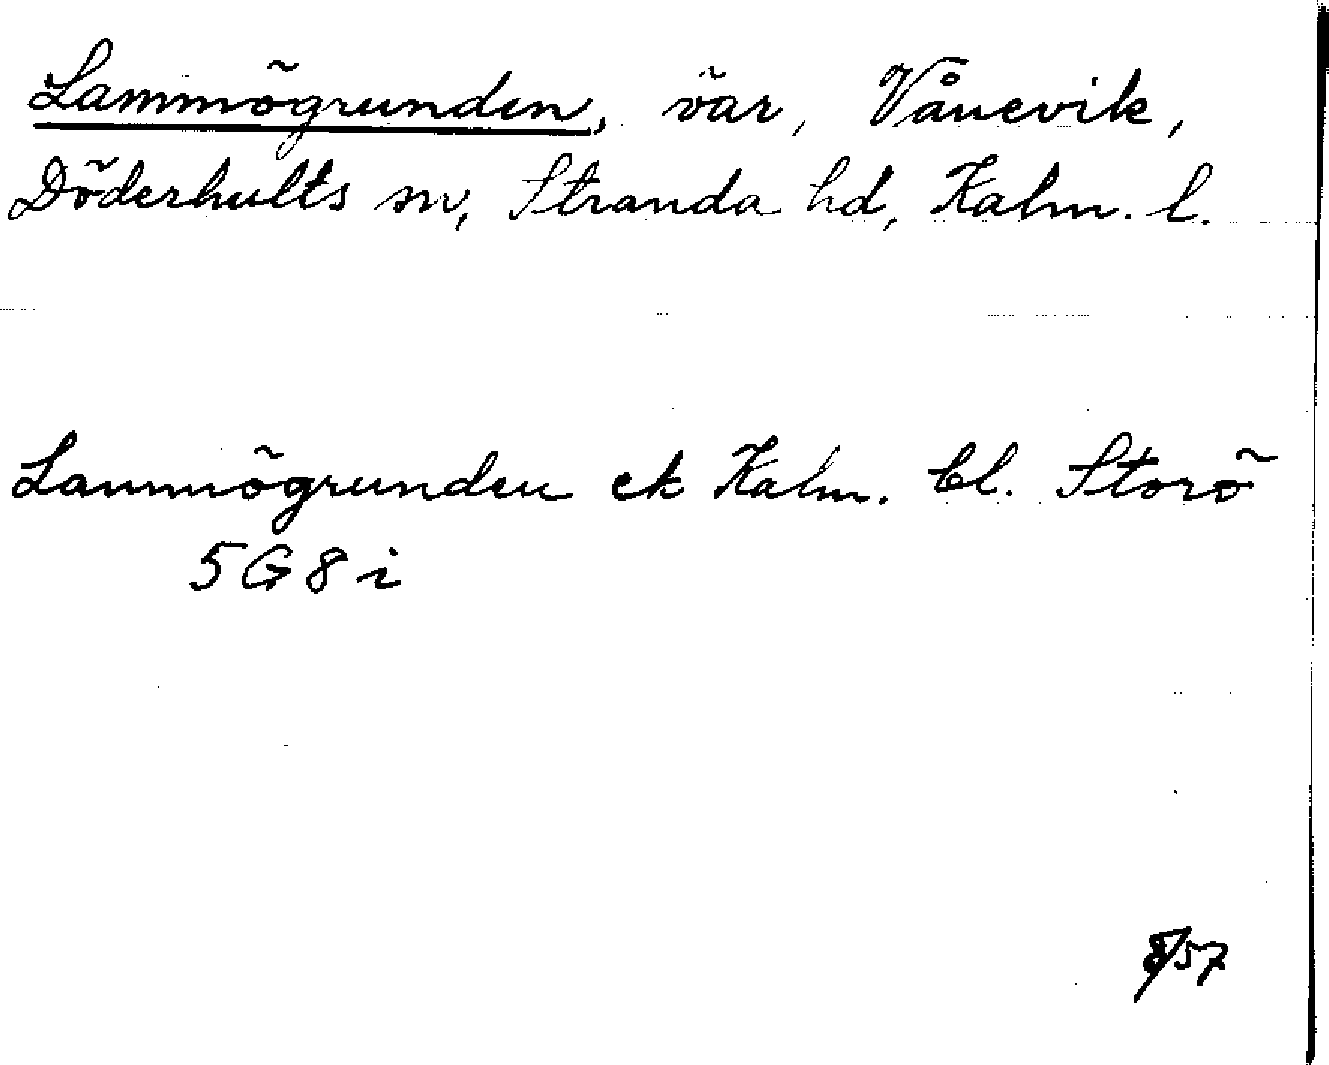 Lammögrunden, öar, Vånevik,
Döderhults sn, Stranda hd, Kalm. l.
Lammögrunden ek Kalm. bl. Storö
5G8i